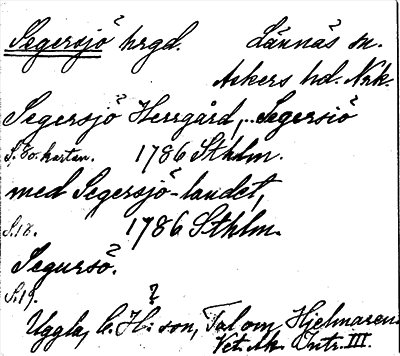 Segersjö hrgd. Lännäs sn.
Askers hd. Nrk.
Segersjö Herrgård, Segersiö
S. 80. kartan. 1786 Sthlm.
med Segersjö-landet,
S. 18. 1786 Sthlm.
Segursö.
S. 19. ?
Uggla, C. H:son, Tal om Hjelmaren
Vet. Ak. Intr. III.